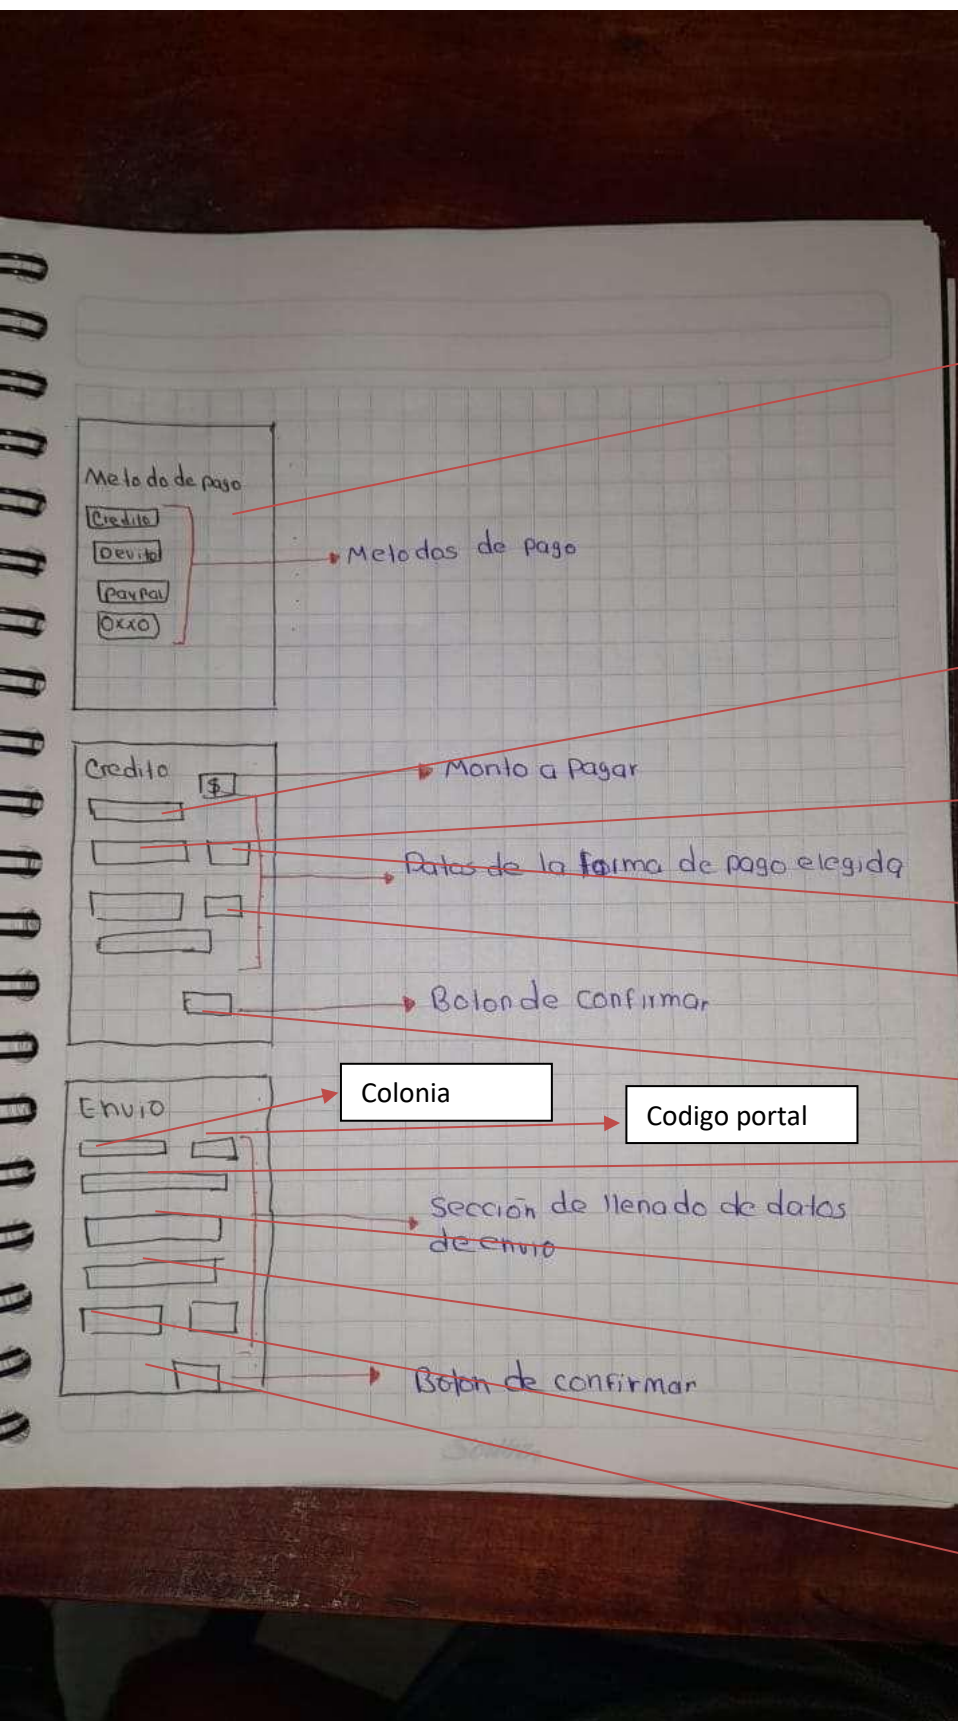 Metodo de pago
Credito
Devito
PayPal
OXXO
Metodos de pago
Credito
$
Monto a Pagar
Datos de la forma de pago elegida
Boton de confirmar
Envio
Colonia
Codigo portal
Sección de llenado de datos
de envio
Boton de confirmar
Scribe